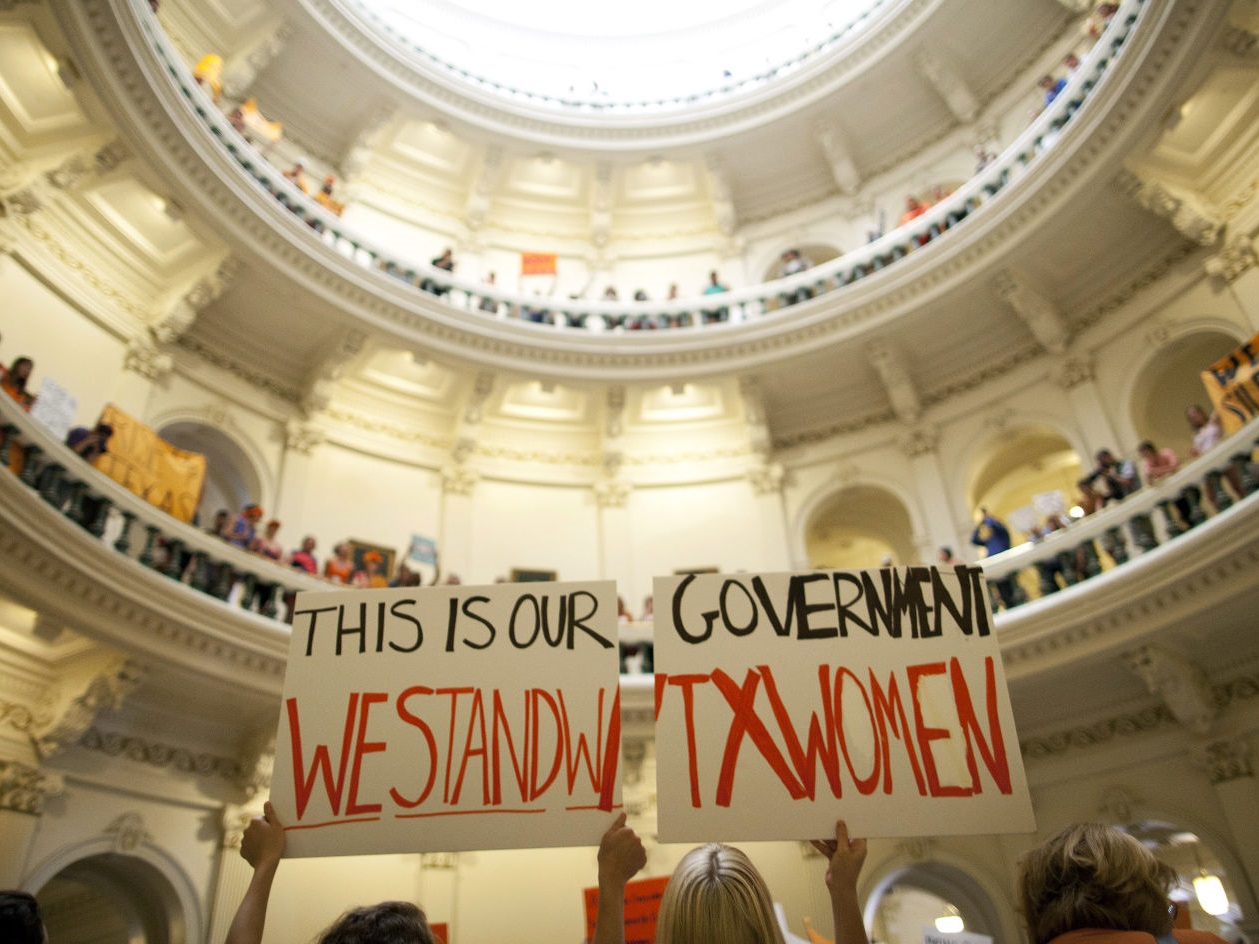 THIS IS OUR
WE STAND W/
GOVERNMENT
TX WOMEN